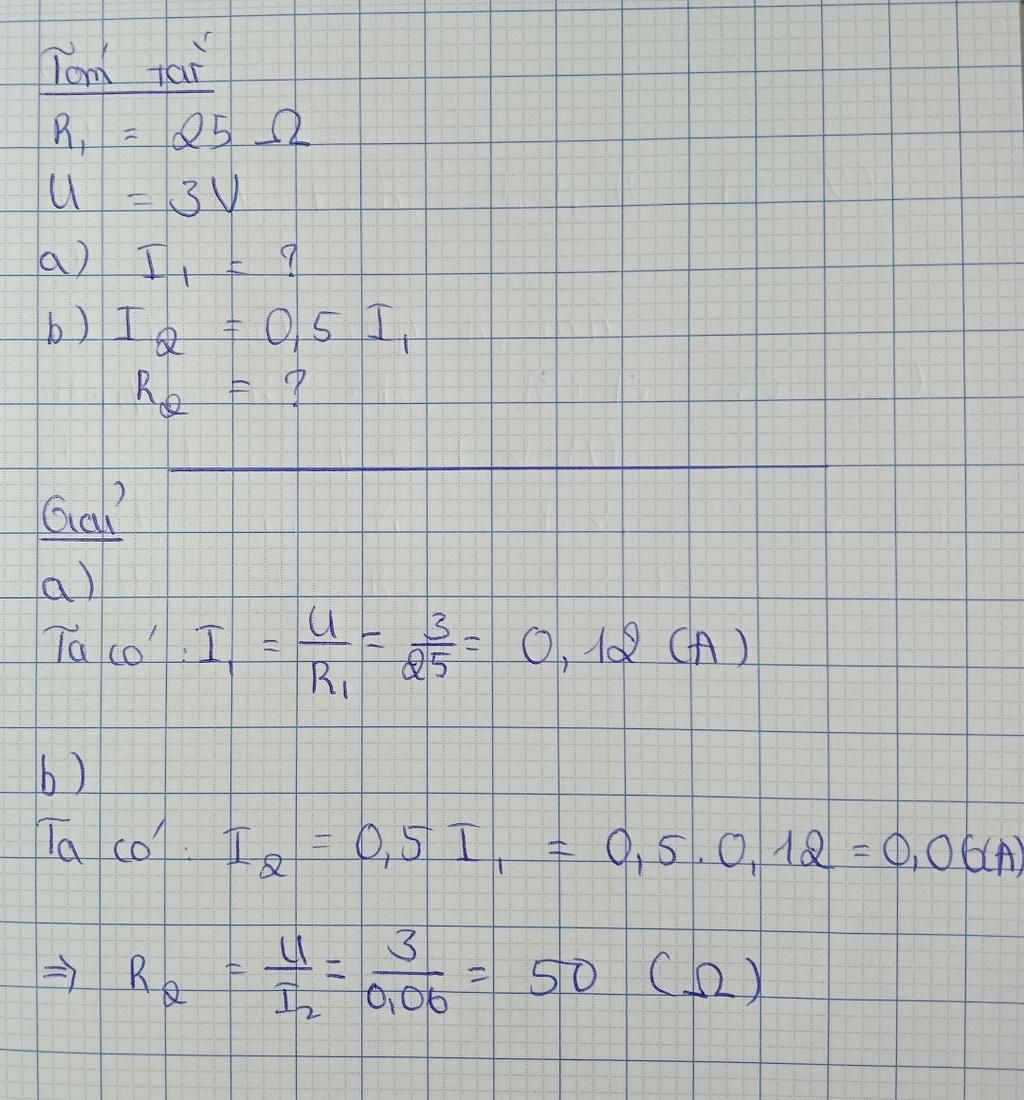 Tóm tắt
R₁ = 25 Ω
U = 3V
a) I₁ = ?
b) I₂ = 0,5 I₁
R₂ = ?
Giải
a)
Ta có : I₁ = U/R₁ = 3/25 = 0,12 (A)
b)
Ta có : I₂ = 0,5 I₁ = 0,5 . 0,12 = 0,06(A)
⇒ R₂ = U/I₂ = 3/0,06 = 50 (Ω)